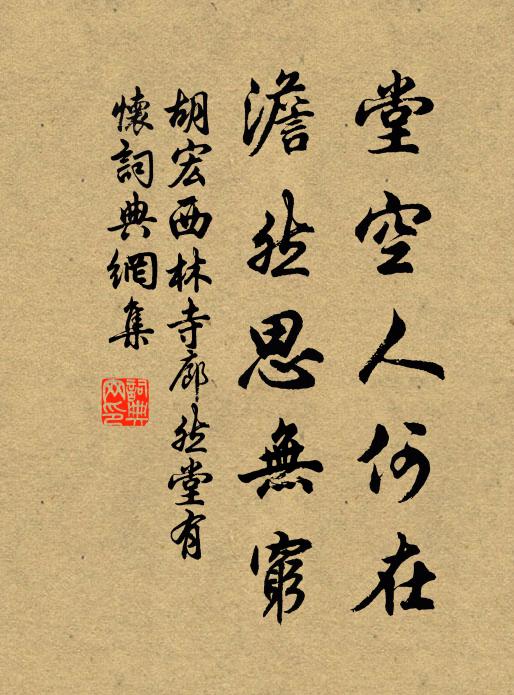 堂空人何在
澹然思無窮
胡宏西林寺廊然堂有
懷詞典網集
詞典網印